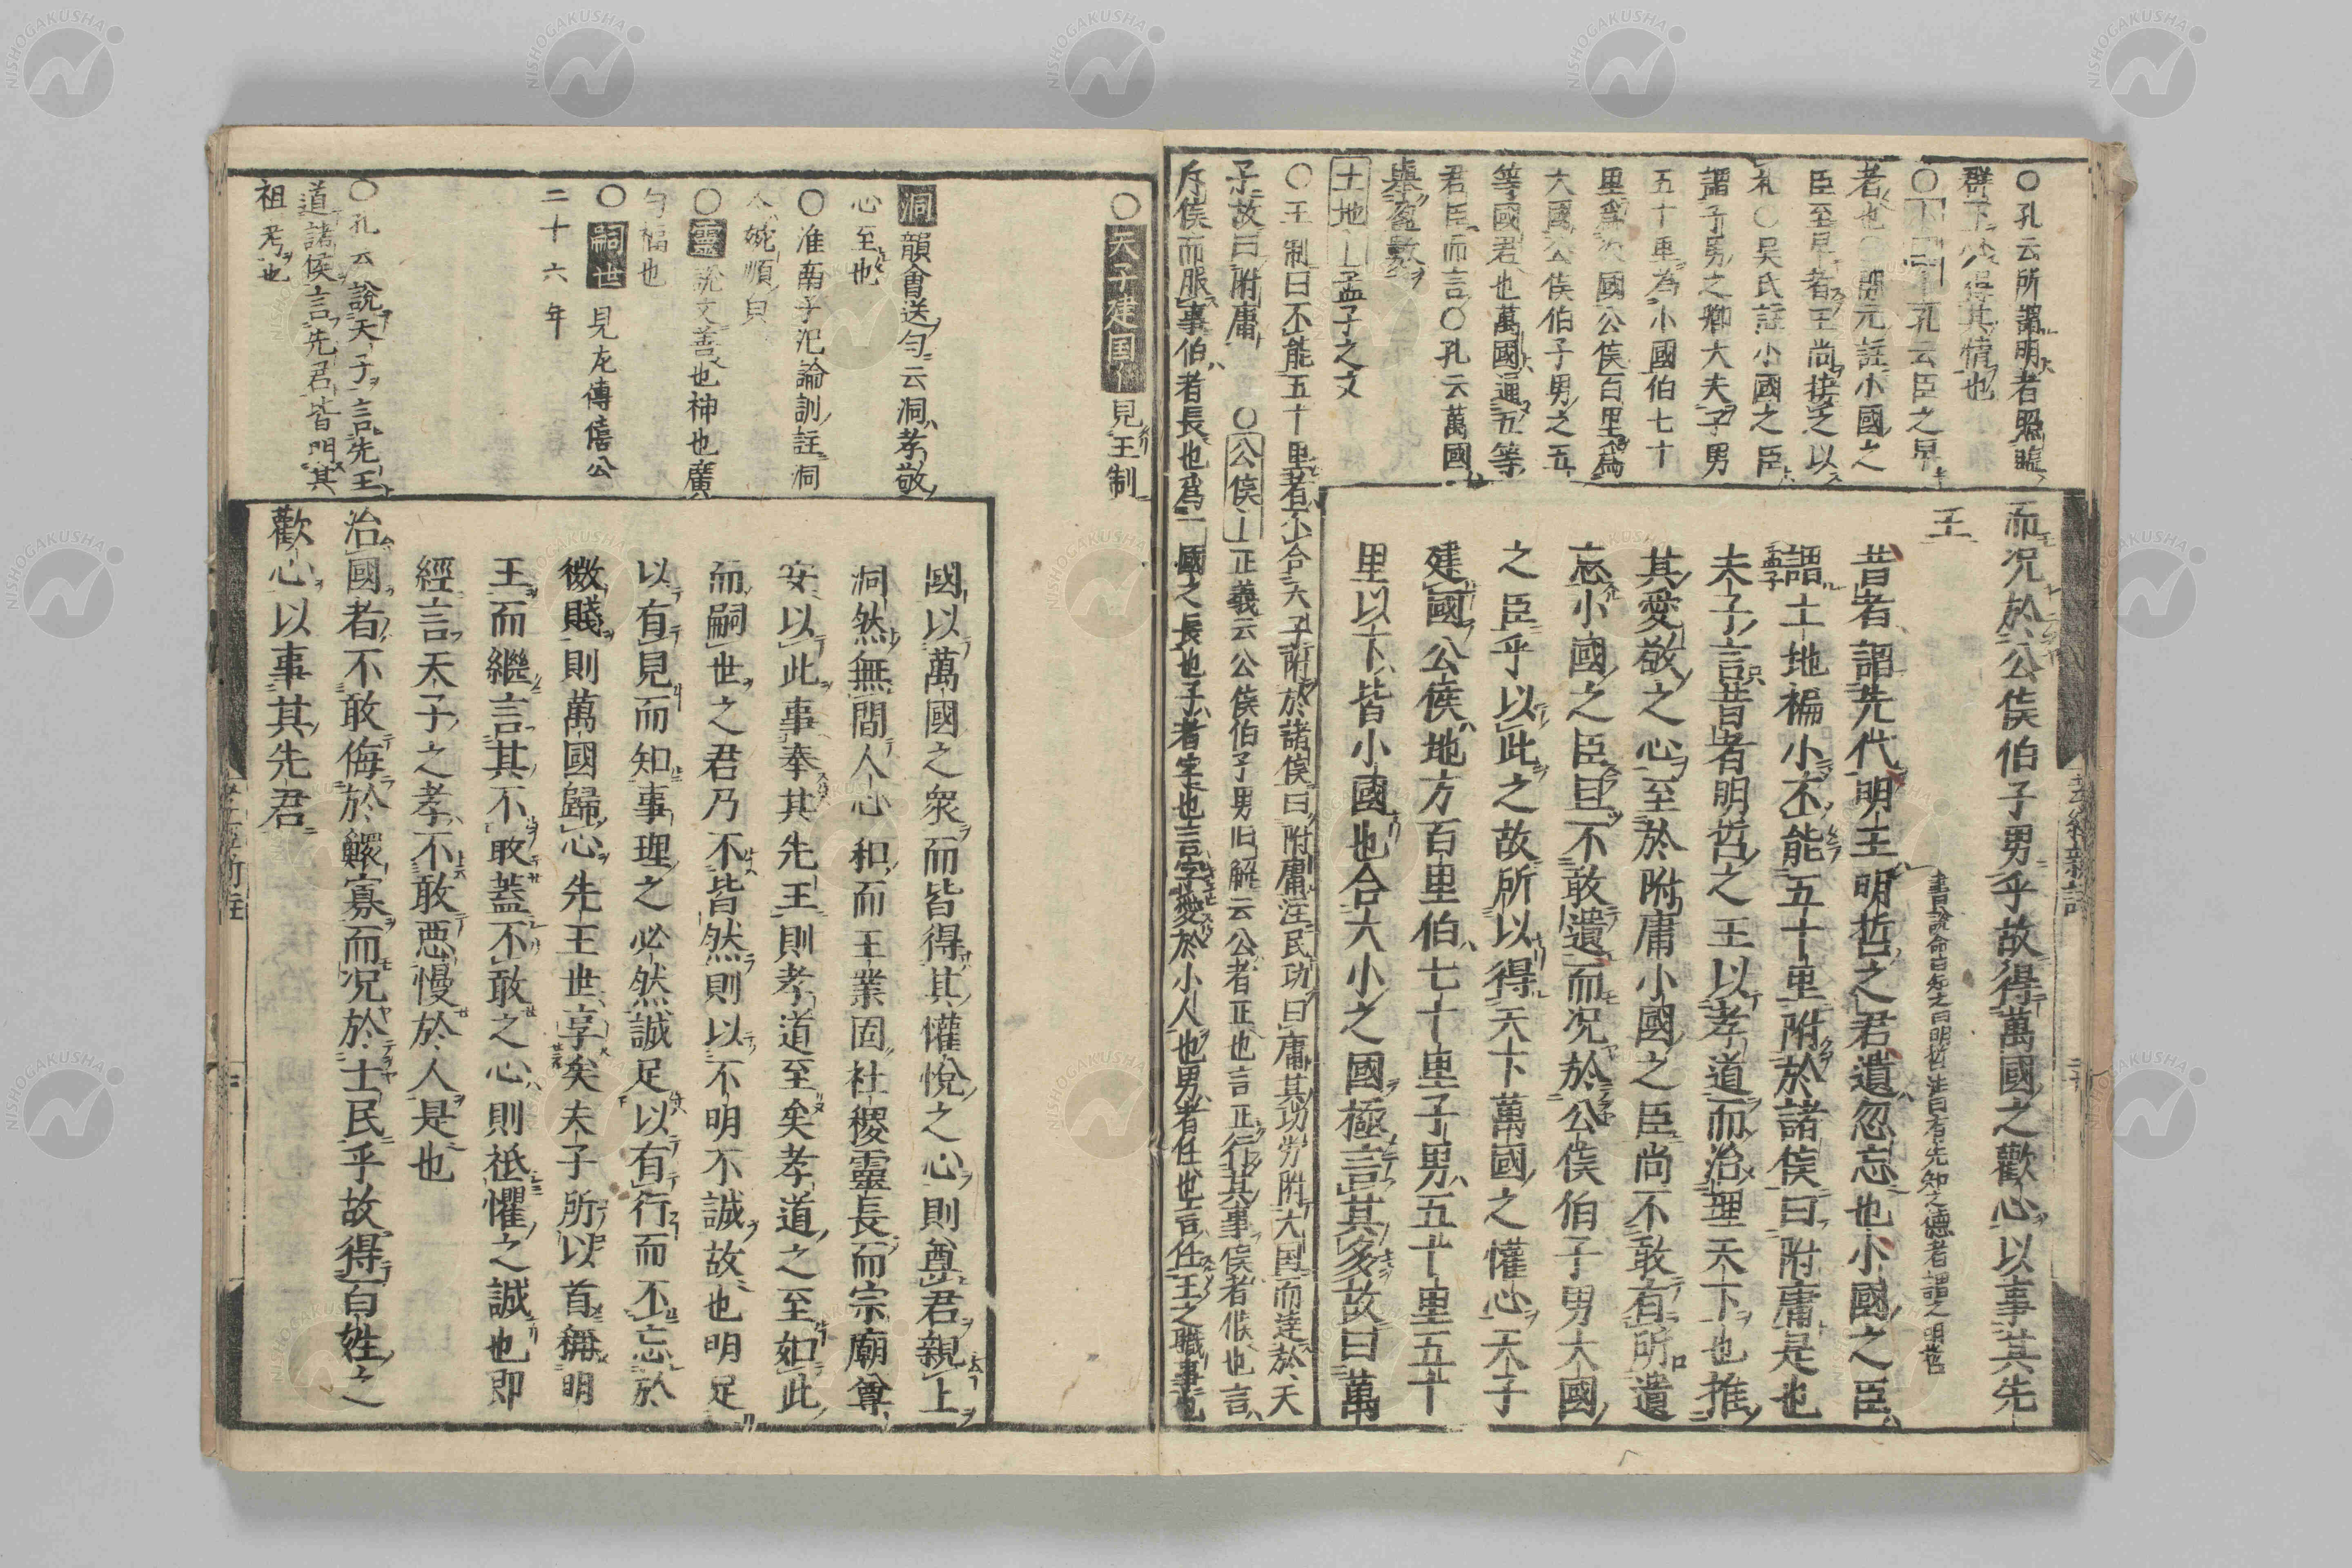 〇孔云所謂明者照臨
群下必得其情也
孔云臣之卑
者也〇謝元註小國之
臣至卑者王尚接之以
礼〇吴氏註小國之臣
謂子男之卿大夫子男
五十里為小國伯七十
里為次國公侯百里為
大國公侯伯子男之五
等國君也萬國通五等
君臣而言〇孔云萬國
舉盈數
土地孟子之文
〇王制曰不能五十里者不合天子附於諸侯曰附庸注民功曰庸其功勞附大国而達於天
子故曰附庸 〇公侯正義云公侯伯子男旧解云公者正也言正行其事侯者候也言
斥候而服事伯者長也爲一國之長也子者字也言字愛於小人也男者任也言任王之職事也
而况於公侯伯子男乎故得萬國之歡心以事其先
王
書說命曰知之曰明哲注曰有先知之德者謂之明哲
昔者謂先代明王明哲之君遺忽忘也小國之臣
孟子
謂土地褊小不能五十里附於諸侯曰附庸是也
夫子言昔者明哲之王以孝道而治理天下也推
其愛敬之心至於附庸小國之臣尚不敢有所遺
忘小國之臣且不敢遺而况於公侯伯子男大國
之臣乎以此之故所以得天下萬國之懽心天子
建國公侯地方百里伯七十里子男五十里五十
里以下皆小國也合大小之國極言其多故曰萬
孝經新註
〇天子建国見王制
洞韻會送勻云洞孝敬
心至也
〇准南子氾論訓註洞
婉順貌
〇靈說文善也神也廣
勻福也
〇嗣世見左傳僖公
二十六年
〇孔云說天子言先王
道諸侯言先君皆明其
祖考也
國以萬國之衆而皆得其懽悅之心則尊君親上
洞然無間人心和而王業固社稷靈長而宗廟尊
安以此事奉其先王則孝道至矣孝道之至如此
而嗣世之君乃不皆然則以不明不誠故也明足
以有見而知事理之必然誠足以有行而不忘於
微賤則萬國歸心先王世享矣夫子所以首稱明
王而繼言其不敢蓋不敢之心則祇懼之誠也即
經言天子之孝不敢惡慢於人是也
治國者不敢侮於鰥寡而况於士民乎故得百姓之
歡心以事其先君
孝經新註